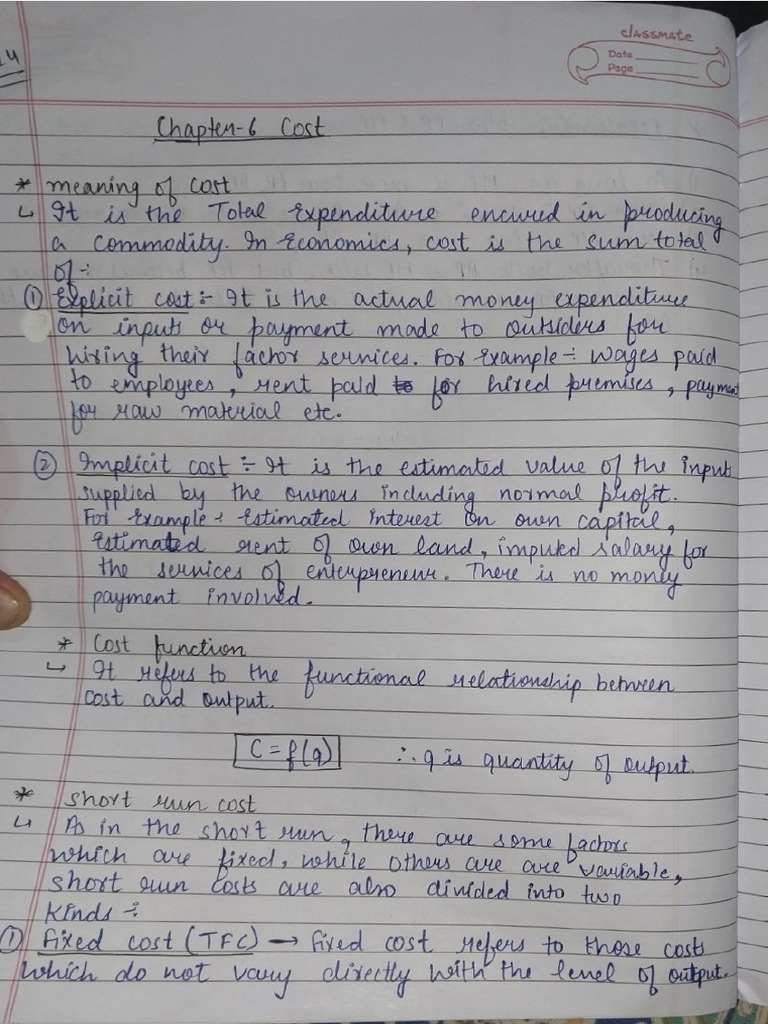 classmate
Date
Page
24
Chapter-6 Cost
* meaning of cost
↳ It is the Total Expenditure encured in producing
a commodity. In Economics, cost is the sum total
of :-
① Explicit cost :- It is the actual money expenditure
on inputs or payment made to outsiders for
hiring their factor services. For Example :- Wages paid
to employees, rent paid to for hired premises, payment
for raw material etc.
② Implicit cost :- It is the estimated value of the input
supplied by the owners including normal profit.
For Example : Estimated interest on own capital,
Estimated rent of own land, imputed salary for
the services of enterpreneur. There is no money
payment involved.
* Cost function
↳ It refers to the functional relationship between
cost and output.
C = f(q) ∴ q is quantity of output.
* short run cost
↳ As in the short run, there are some factors
which are fixed, while others are are variable,
short run costs are also divided into two
kinds :-
① Fixed cost (TFC) → Fixed cost refers to those costs
which do not vary directly with the level of output.